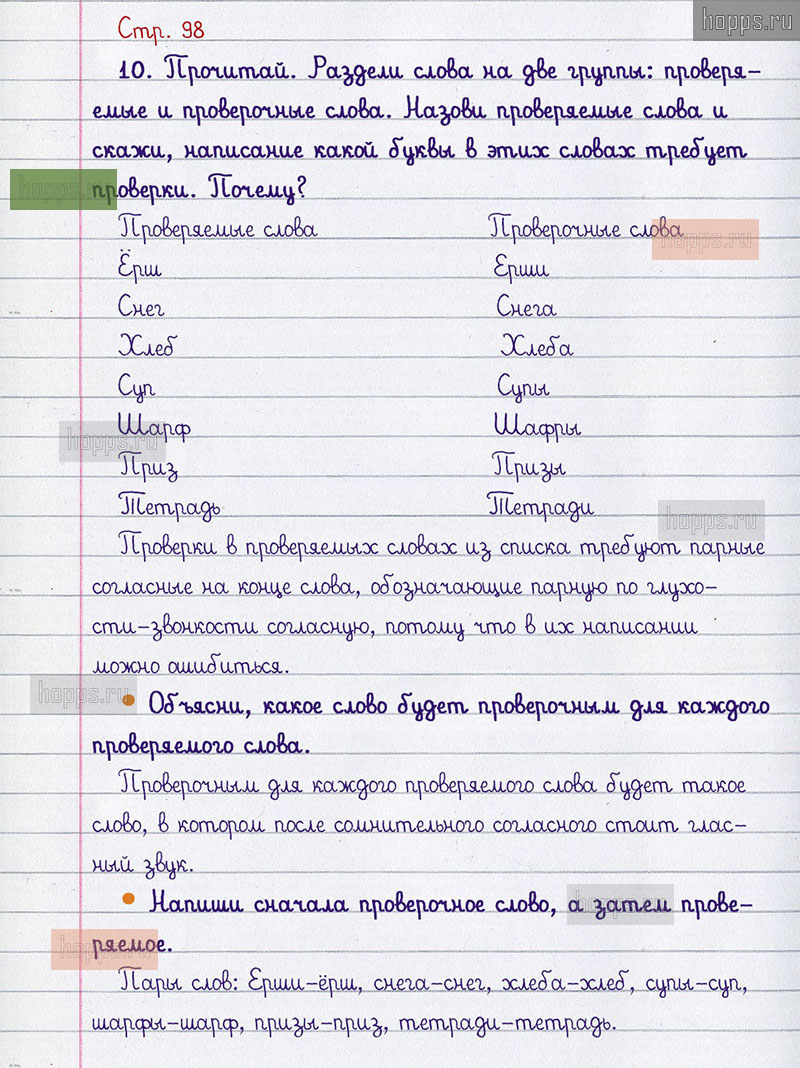 hopps.ru
Стр. 98
10. Прочитай. Раздели слова на две группы: проверя-
емые и проверочные слова. Назови проверяемые слова и
скажи, написание какой буквы в этих словах требует
проверки. Почему?
Проверяемые слова Проверочные слова
Ёрш Ерши
Снег Снега
Хлеб Хлеба
Суп Супы
Шарф Шафры
Приз Призы
Тетрадь Тетради
Проверки в проверяемых словах из списка требуют парные
согласные на конце слова, обозначающие парную по глухо-
сти-звонкости согласную, потому что в их написании
можно ошибиться.
• Объясни, какое слово будет проверочным для каждого
проверяемого слова.
Проверочным для каждого проверяемого слова будет такое
слово, в котором после сомнительного согласного стоит глас-
ный звук.
• Напиши сначала проверочное слово, а затем прове-
ряемое.
Пары слов: Ерши-ёрш, снега-снег, хлеба-хлеб, супы-суп,
шарфы-шарф, призы-приз, тетради-тетрадь.